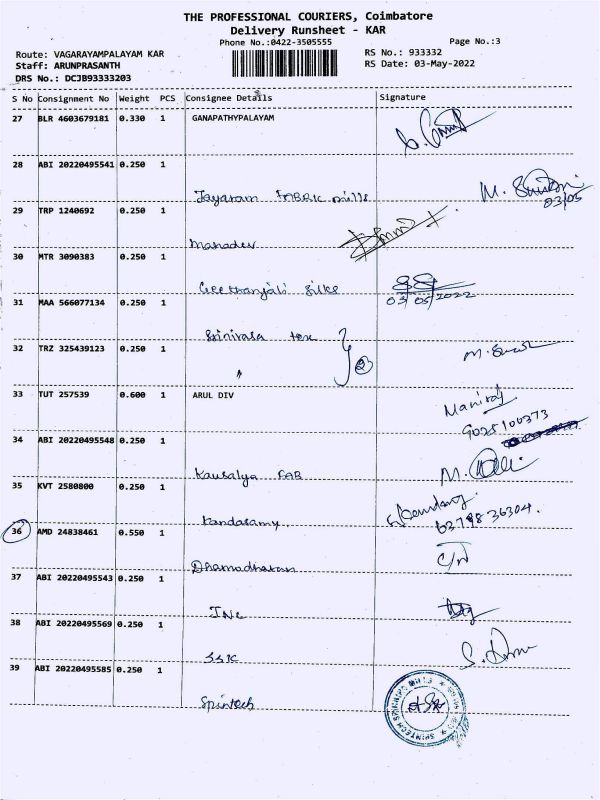 THE PROFESSIONAL COURIERS, Coimbatore
Delivery Runsheet - KAR
Phone No.:0422-3505555
Page No.:3
Route: VAGARAYAMPALAYAM KAR
RS No.: 933332
Staff: ARUNPRASANTH
RS Date: 03-May-2022
DRS No.: DCJB93333203
S No Consignment No Weight PCS Consignee Details Signature
27 BLR 4603679181 0.330 1 GANAPATHYPALAYAM
28 ABI 20220495541 0.250 1
Jayaram FABRIC mills
03/05
29 TRP 1240692 0.250 1
Mahadev
30 MTR 3090383 0.250 1
Geethanjali silks
03/05/2022
31 MAA 566077134 0.250 1
Srinivasa tex
32 TRZ 325439123 0.250 1
" 2
33 TUT 257539 0.600 1 ARUL DIV
Maniraj
9025100373
34 ABI 20220495548 0.250 1
Kausalya FAB
35 KVT 2580800 0.250 1
Kandasamy
63798 36304.
36 AMD 24838461 0.550 1
Dhamodharan
37 ABI 20220495543 0.250 1
INC
38 ABI 20220495569 0.250 1
SSK
39 ABI 20220495585 0.250 1
Spintech
SPINTECH SPINNING MILLS